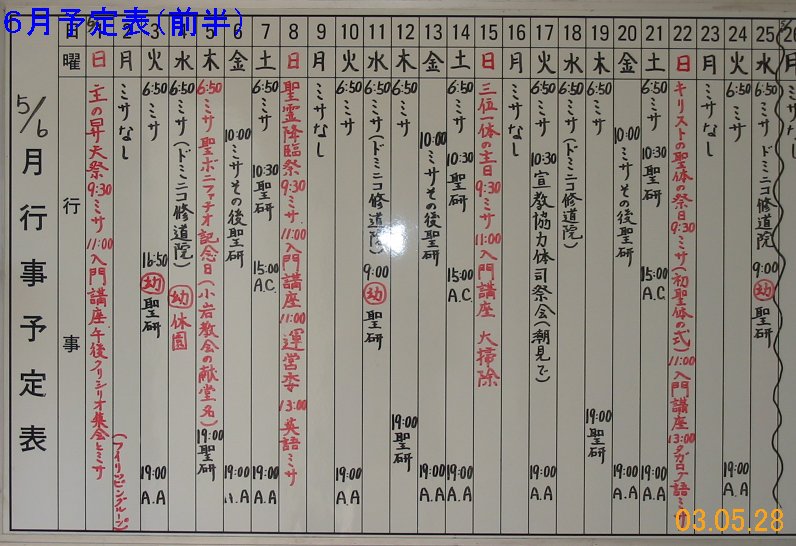 6月予定表(前半)
5/6月行事予定表
日 2 3 4 5 6 7 8 9 10 11 12 13 14 15 16 17 18 19 20 21 22 23 24 25 26
曜 日 月 火 水 木 金 土 日 月 火 水 木 金 土 日 月 火 水 木 金 土 日 月 火 水
行事
主の昇天祭 9:30 ミサ 11:00 入門講座 午後フリシリオ集会とミサ
ミサなし (フィリッピングループ)
6:50 ミサ 16:50 幼 聖研 19:00 A.A
6:50 ミサ (ドミニコ修道院) 幼 休園
6:50 ミサ 聖ボニファチオ記念日(小岩教会の献堂名) 19:00 聖研
10:00 ミサその後聖研 19:00 A.A
6:50 ミサ 10:30 聖研 15:00 A.C. 19:00 A.A
聖霊降臨祭 9:30 ミサ 11:00 入門講座 11:00 運営委 13:00 英語ミサ
ミサなし
6:50 ミサ 19:00 A.A
6:50 ミサ (ドミニコ修道院) 9:00 幼 聖研
6:50 ミサ 19:00 聖研
10:00 ミサその後聖研 19:00 A.A
6:50 ミサ 10:30 聖研 15:00 A.C 19:00 A.A
三位一体の主日 9:30 ミサ 11:00 入門講座 大掃除
ミサなし
6:50 ミサ 10:30 宣教協力体司祭会(潮見で) 19:00 A.A
6:50 ミサ (ドミニコ修道院)
6:50 ミサ 19:00 聖研
10:00 ミサその後聖研 19:00 A.A
6:50 ミサ 10:30 聖研 15:00 A.C 19:00 A.A
キリストの聖体の祭日 9:30 ミサ (初聖体の式) 11:00 入門講座 13:00 タガログ語ミサ
ミサなし
6:50 ミサ 19:00 A.A
6:50 ミサ ドミニコ修道院 9:00 幼 聖研
03.05.28